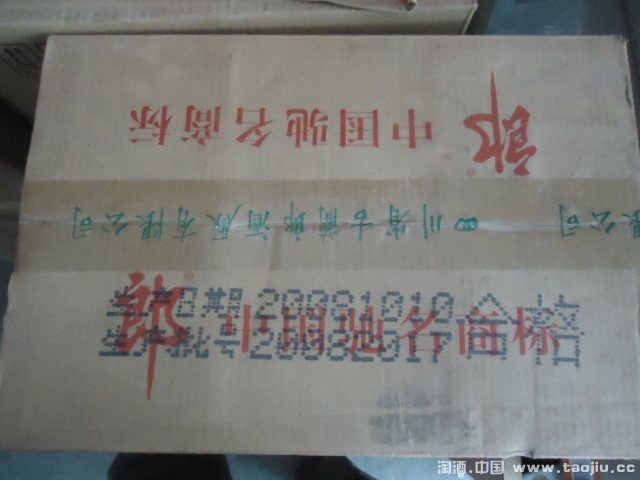 郎® 中国驰名商标
限公司 四川省古蔺郎酒厂有限公司
生产日期 20081010 合格
生产批号
郎® 中国驰名商标
淘酒.中国 www.taojiu.cc